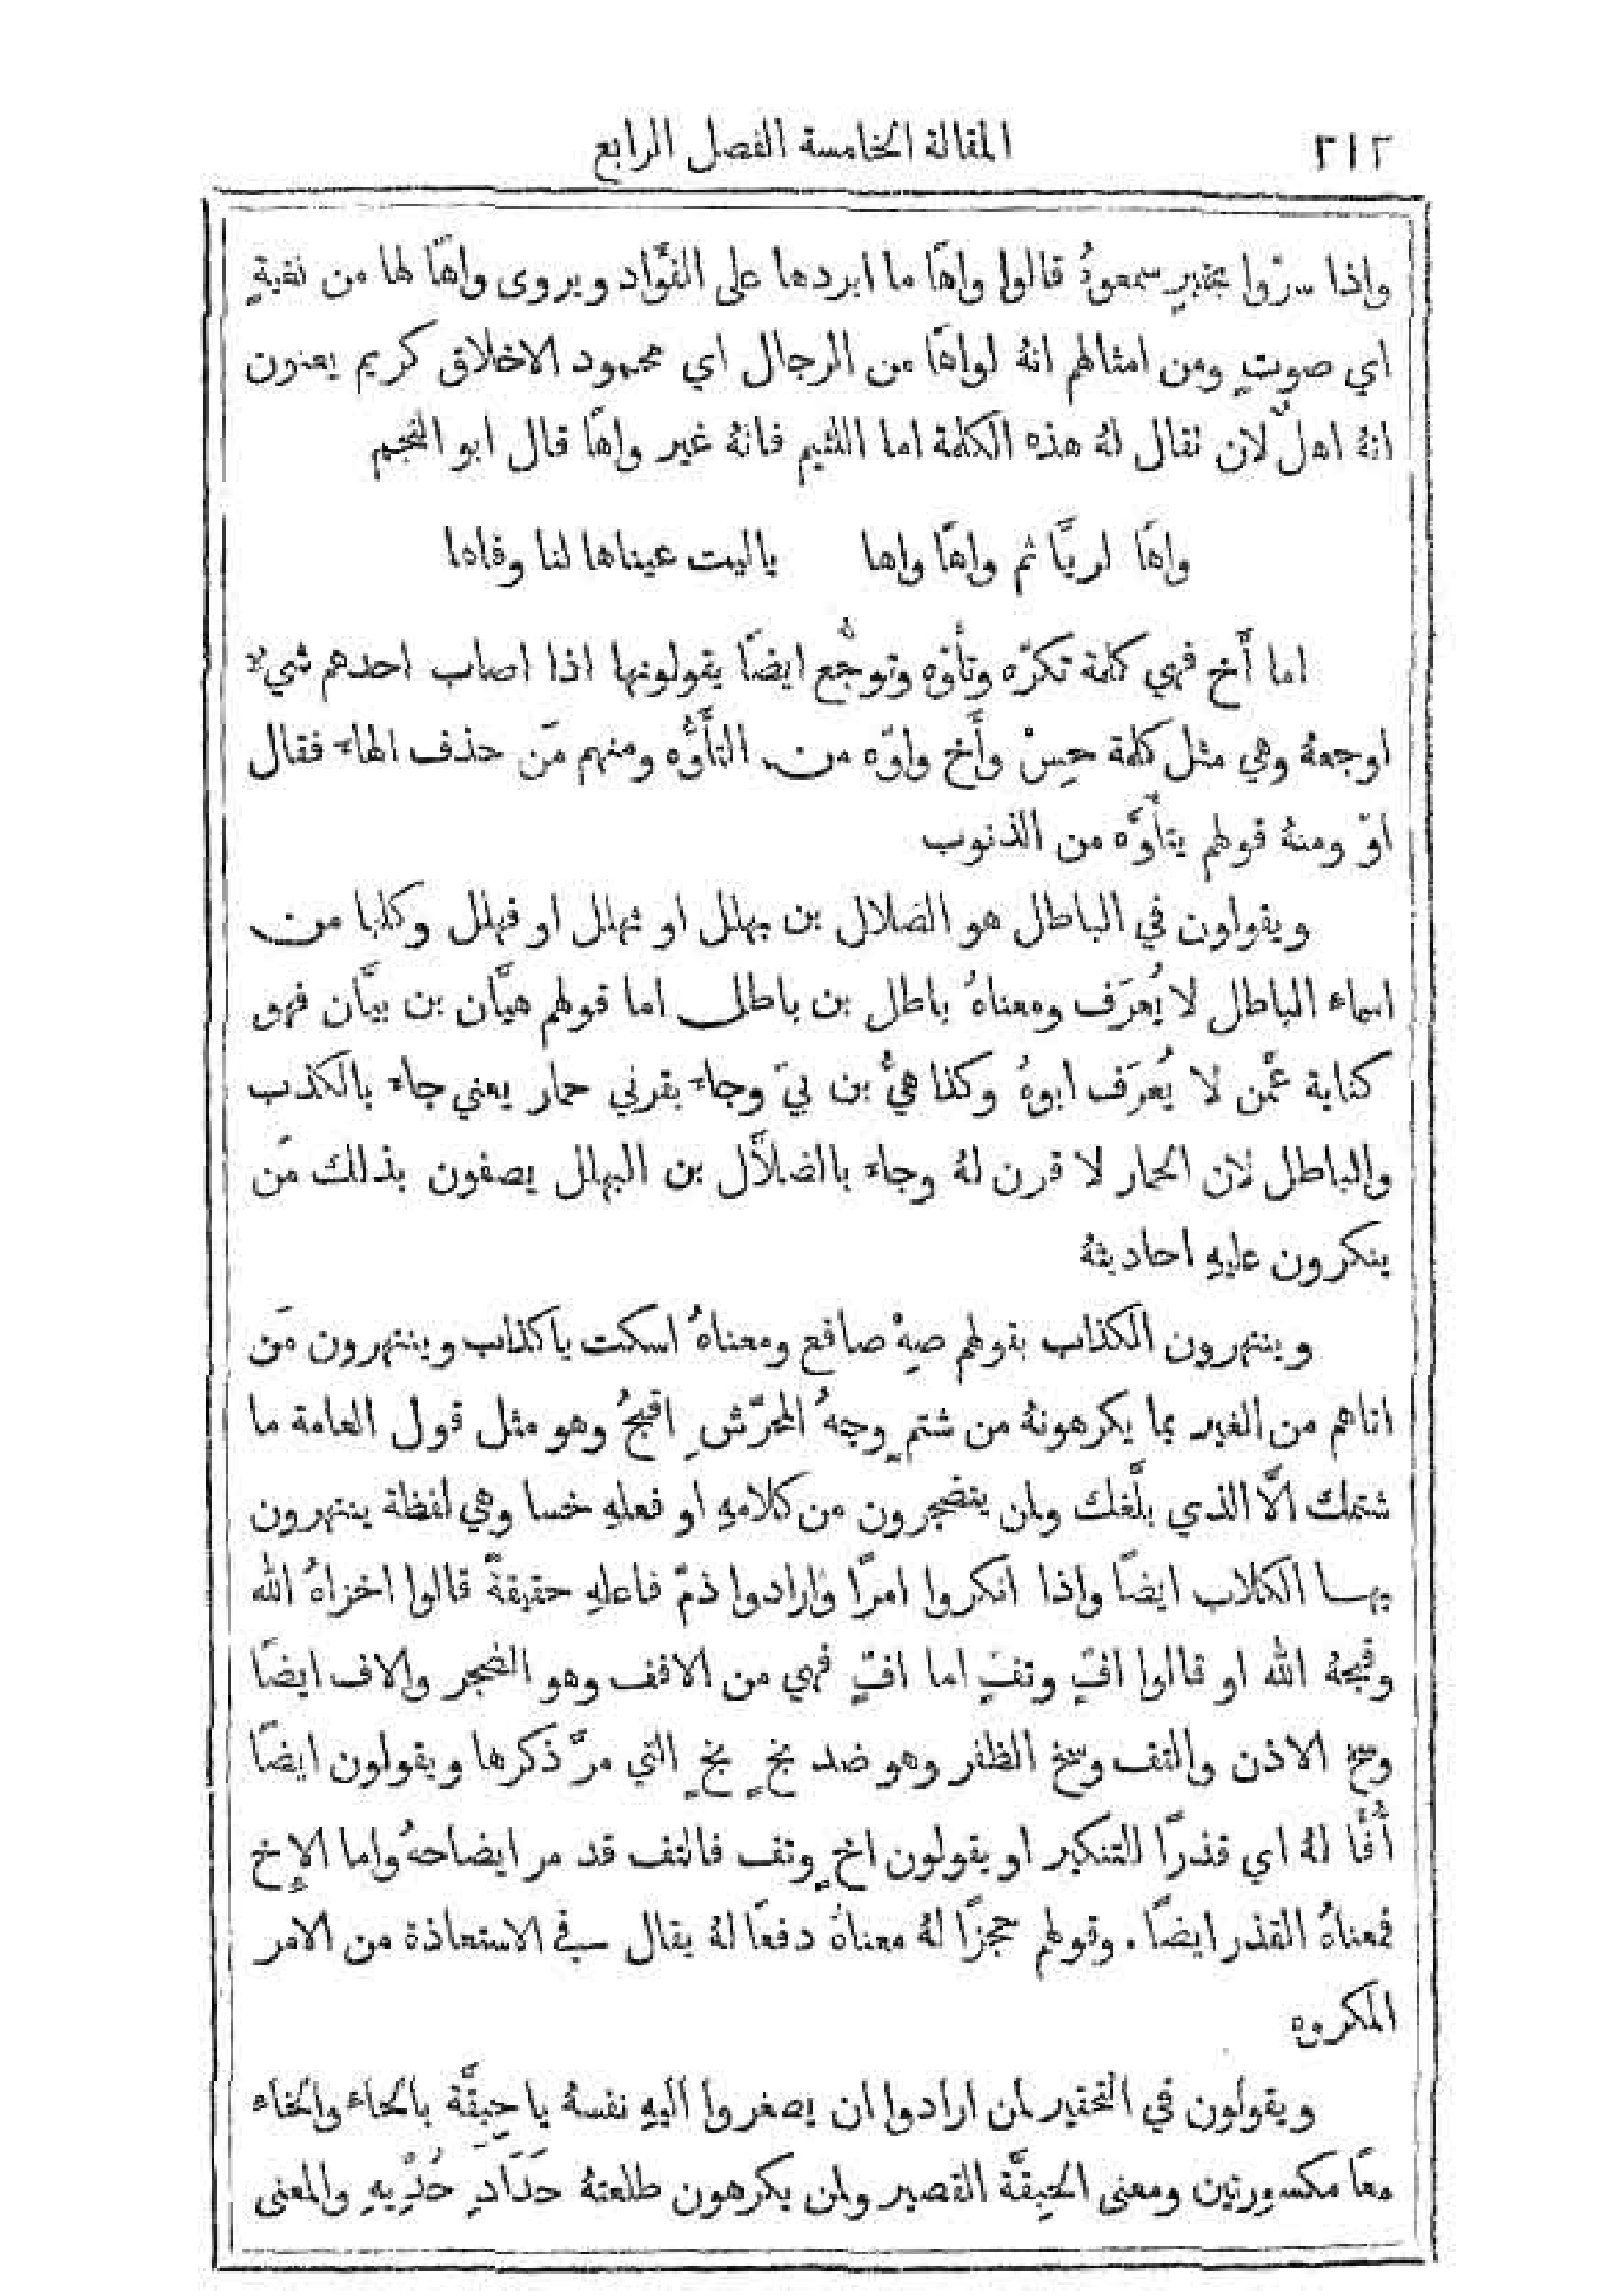 ٣١٢
المقالة الخامسة الفصل الرابع
واذا سرّوا بخبرٍ سمعوهُ قالوا واهًا ما ابردها على الفؤاد ويروى واهًا لها من نغيةٍ
اي صوتٍ ومن امثالهم انهُ لواهًا من الرجال اي محمود الاخلاق كريم يعنون
انهُ اهلٌ لان تقال لهُ هذه الكلمة اما اللئيم فانهُ غير واهًا قال ابو النجم
واهًا لريَّا ثم واهًا واها ياليت عيناها لنا وفاها
اما أخ فهي كلمة تكرّه وتأوّه وتوجُّع ايضًا يقولونها اذا اصاب احدهم شيءٌ
اوجعهُ وهي مثل كلمة حِسْ وأَخ واوّه من التأوُّه ومنهم مَن حذف الهاء فقال
اوّ ومنهُ قولهم يتأوَّه من الذنوب
ويقولون في الباطل هو الضلال بن بهلل او ثهلل او فهلل وكلها من
اسماء الباطل لا يُعرَف ومعناهُ باطل بن باطل اما قولهم هيَّان بن بيَّان فهو
كناية عمَّن لا يُعرَف ابوهُ وكذا هيُّ بن بيّ وجاء بقرني حمار يعني جاء بالكذب
والباطل لان الحمار لا قرن لهُ وجاء بالضلاَّل بن البهلل يصفون بذلك مَن
ينكرون عليهِ احاديثهُ
وينتهرون الكذاب بقولهم صهْ صاقع ومعناهُ اسكت ياكذاب وينتهرون مَن
اتاهم من الغير بما يكرهونهُ من شتمٍ وجهُ المحرّشِ اقبحُ وهو مثل قول العامة ما
شتمك الاَّ الذي بلَّغك ولمن يتضجرون من كلامهِ او فعلهِ خسا وهي لفظة ينتهرون
بها الكلاب ايضًا واذا انكروا امرًا وارادوا ذمّ فاعلهِ حقيقةً قالوا اخزاهُ الله
وقبحهُ الله او قالوا افٍّ وتفٍّ اما افٍّ فهي من الافف وهو الضجر والاف ايضًا
وسخ الاذن والتف وسخ الظفر وهو ضد بخٍ بخٍ التي مرَّ ذكرها ويقولون ايضًا
أُفًّا لهُ اي قذرًا للتنكير او يقولون اخٍ وتف فالتف قد مر ايضاحهُ واما الإخ
فمعناهُ القذر ايضًا . وقولهم حجزًا لهُ معناهُ دفعًا لهُ يقال في الاستعاذة من الامر
المكروه
ويقولون في التحقير لمن ارادوا ان يصغروا اليهِ نفسهُ يا حِبِقَّة بالحاء والخاء
معًا مكسورتين ومعنى الحِبِقَّة القصير ولمن يكرهون طلعتهُ حَدَادِ حُدِّيهِ والمعنى